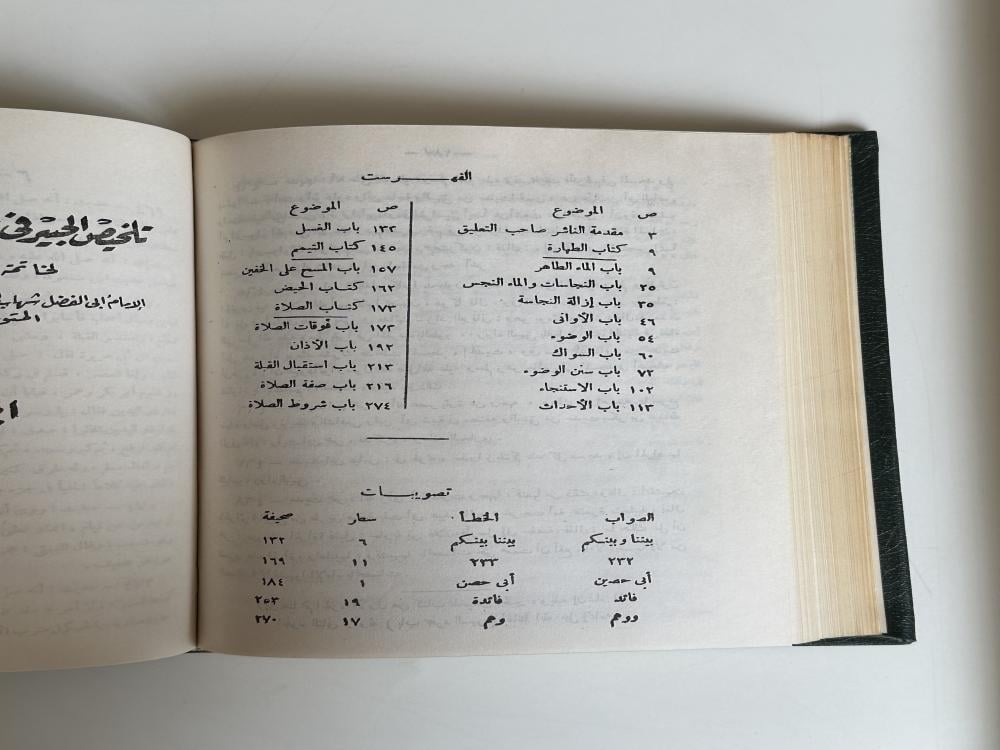 الفهرست
ص الموضوع
٣ مقدمة الناشر صاحب التعليق
٩ كتاب الطهارة
٩ باب الماء الطاهر
٢٥ باب النجاسات والماء النجس
٣٥ باب إزالة النجاسة
٤٦ باب الأوانى
٥٤ باب الوضوء
٦٠ باب السواك
٧٢ باب سنن الوضوء
١٠٢ باب الاستنجاء
١١٣ باب الأحداث
ص الموضوع
١٣٢ باب الغسل
١٤٥ كتاب التيمم
١٥٧ باب المسح على الخفين
١٦٢ كتاب الحيض
١٧٣ كتاب الصلاة
١٧٣ باب أوقات الصلاة
١٩٢ باب الأذان
٢١٣ باب استقبال القبلة
٢١٦ باب صفة الصلاة
٢٧٤ باب شروط الصلاة
تصويبات
الصواب الخطأ سطر صحيفة
بيننا وبينكم بيننا بينكم ٦ ١٣٢
٢٣٢ ٢٣٣ ١١ ١٦٩
أبى حصين أبى حصن ١ ١٨٤
فائد فائدة ١٩ ٢٥٣
ووهم وهم ١٧ ٢٧٠
تلخيص الحبير فى
لخاتمة
الإمام أبى الفضل شهاب
المتو